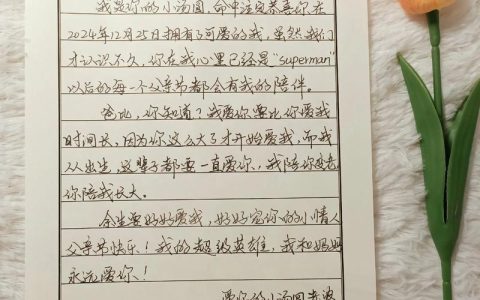 我是你的小汤圆,命中注定恭喜你在
2024年12月25日拥有了可爱的我,虽然我们
才认识不久,你在我心里已经是“superman”
以后的每一个父亲节都会有我的陪伴。
爸比,你知道?我爱你要比你爱我
时间长,因为你这么大了才开始爱我,而我
从出生,这辈子都要一直爱你,我陪你变老,
你陪我长大。
余生要好好爱我,好好宠你的小情人
父亲节快乐!我的超级英雄,我和妈妈
永远爱你!
爱你的小汤圆